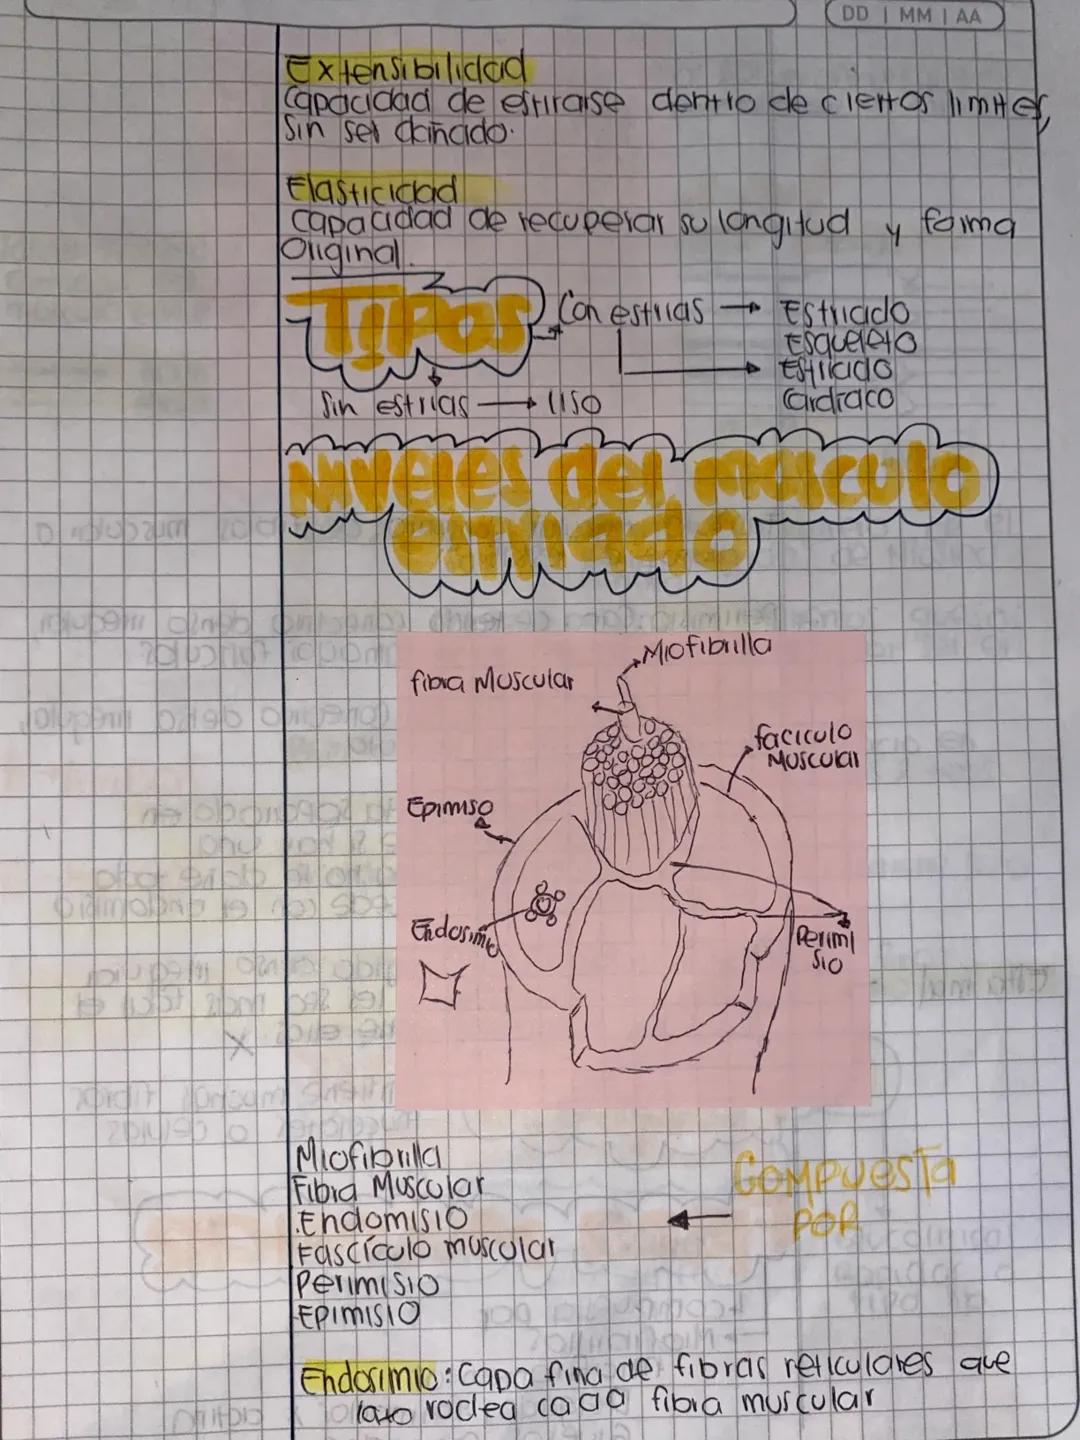 DD | MM | AA
Extensibilidad
Capacidad de estirarse dentro de ciertos limites,
Sin ser dañado.
Elasticidad
Capacidad de recuperar su longitud y forma
Original.
Tipos
Con estrias → Estriado
Esqueleto
Estriado
Cardiaco
Sin estrias → liso
Niveles del músculo
estriado
Miofibrilla
fibra Muscular
facículo
Muscular
Epimiso
Endosimio
Perimi
sio
Miofibrilla
Fibra Muscular
.Endomisio
Fascículo muscular
Perimisio
Epimisio
← Compuesta
por
Endosimio: Capa fina de fibras reticulares que
rodea cada fibra muscular